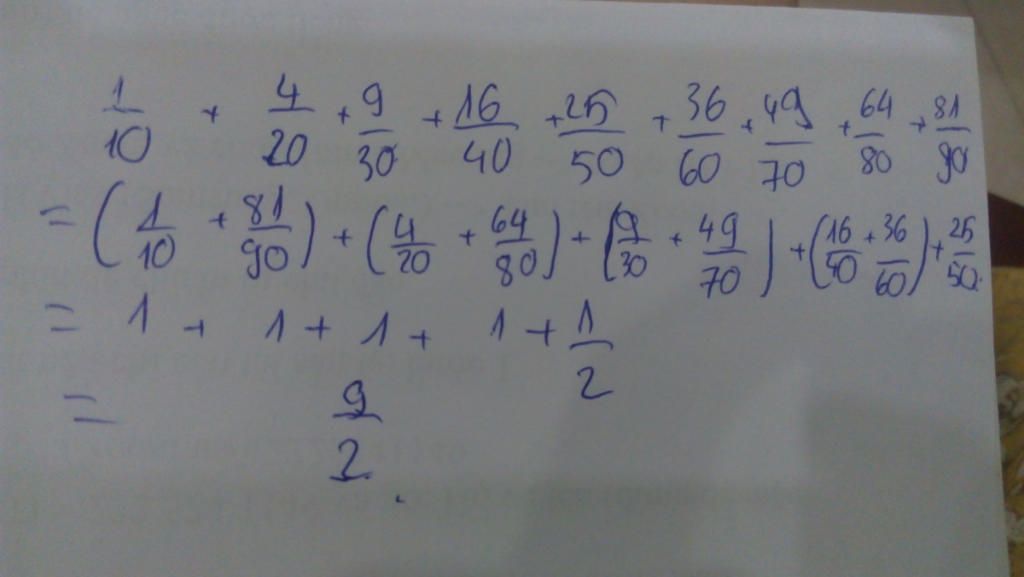 1/10 + 4/20 + 9/30 + 16/40 + 25/50 + 36/60 + 49/70 + 64/80 + 81/90
= (1/10 + 81/90) + (4/20 + 64/80) + (9/30 + 49/70) + (16/40 + 36/60) + 25/50.
= 1 + 1 + 1 + 1 + 1/2
= 9/2.